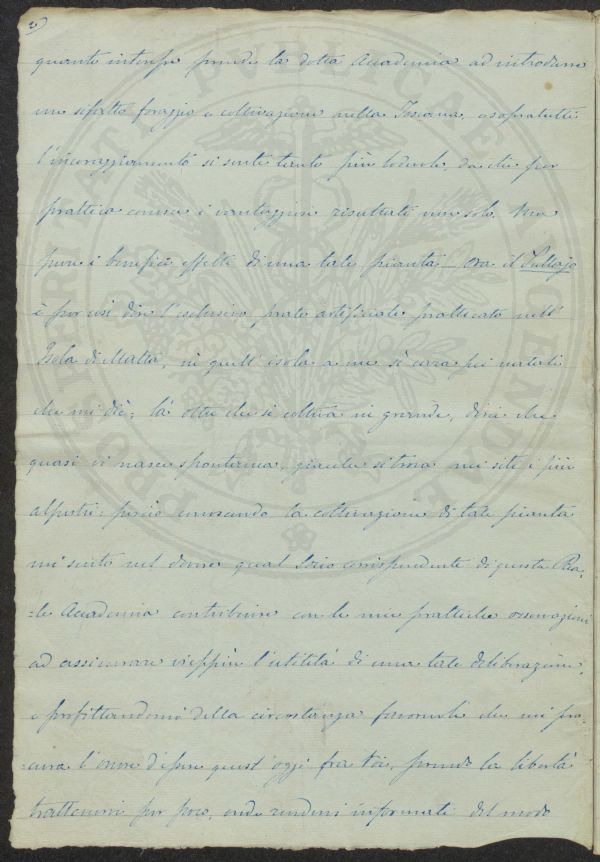 2)
quanto interesse prende la dotta Accademia ad introdurre
un sifatto foraggio e coltivazione nella Toscana, e sopratutti
l'incoraggiamento si sente tanto più lodevole, da chi per
prattica conosce i vantaggiosi risultati non solo, ma
pure i benefici effetti di una tale pianta. Ora il Sullajo
è per così dire l'esclusivo prato artificiale pratticato nell'
Isola di Malta, in quell'isola a me sì cara pei natali
che mi diè; là oltre che si coltiva in grande, direi che
quasi vi nasce spontanea, giacche si trova nei siti i più
alpestri: perciò conoscendo la coltivazione di tale pianta
mi sento nel dovere qual Socio corrispondente di questa Rea-
-le Accademia contribuire con le mie prattiche osservazioni
ad assicurare vieppiù l'utilità di una tale deliberazione,
e profittandomi della circostanza favorevole che mi pro-
cura l'onore d'essere quest'oggi fra Voi, prendo la libertà
trattenervi per poco, onde rendervi informati del modo
PROSPERITATI PUBLICAE AUGENDAE